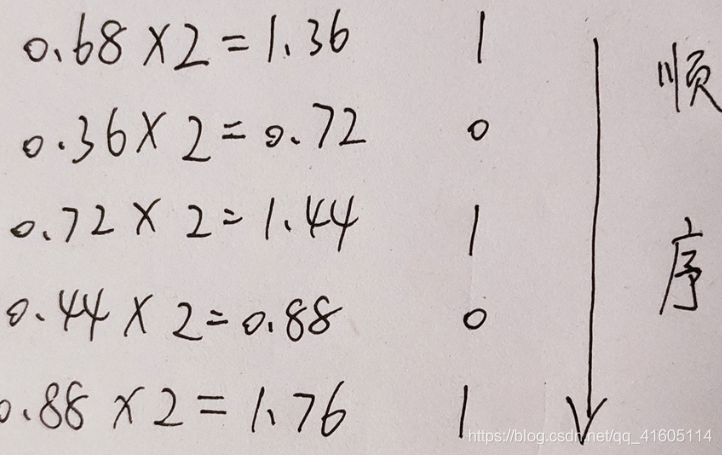 0.68×2=1.36 1
0.36×2=0.72 0
0.72×2=1.44 1
0.44×2=0.88 0
0.88×2=1.76 1
顺序
https://blog.csdn.net/qq_41605114